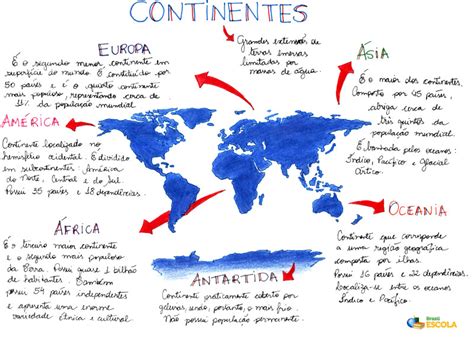 CONTINENTES
Grandes extensões de
terras imersas
limitadas por
massas de água.
EUROPA
É o segundo menor continente em
superfície do mundo. É constituído por
50 países e é o quarto continente
mais populoso, representando cerca de
11% da população mundial.
ÁSIA
É o maior dos continentes.
Composto por 45 países,
abriga cerca de
três quintos da
população mundial.
É banhada pelos oceanos:
Índico, Pacífico e Glacial
Ártico.
AMÉRICA
Continente localizado no
hemisfério ocidental. É dividido
em subcontinentes: América
do Norte, Central e do Sul.
Possui 35 países e 18 dependências.
OCEANIA
Continente que corresponde
a uma região geográfica
composta por ilhas.
Possui 16 países e 22 dependências.
Localiza-se entre os oceanos
Índico e Pacífico.
ÁFRICA
É o terceiro maior continente
e o segundo mais populoso
da Terra. Possui quase 1 bilhão
de habitantes. Também
possui 54 países independentes
e apresenta uma enorme
variedade étnica e cultural
ANTÁRTIDA
Continente praticamente coberto por
geleiras, sendo, portanto, o mais frio.
Não possui população permanente.
Brasil
ESCOLA